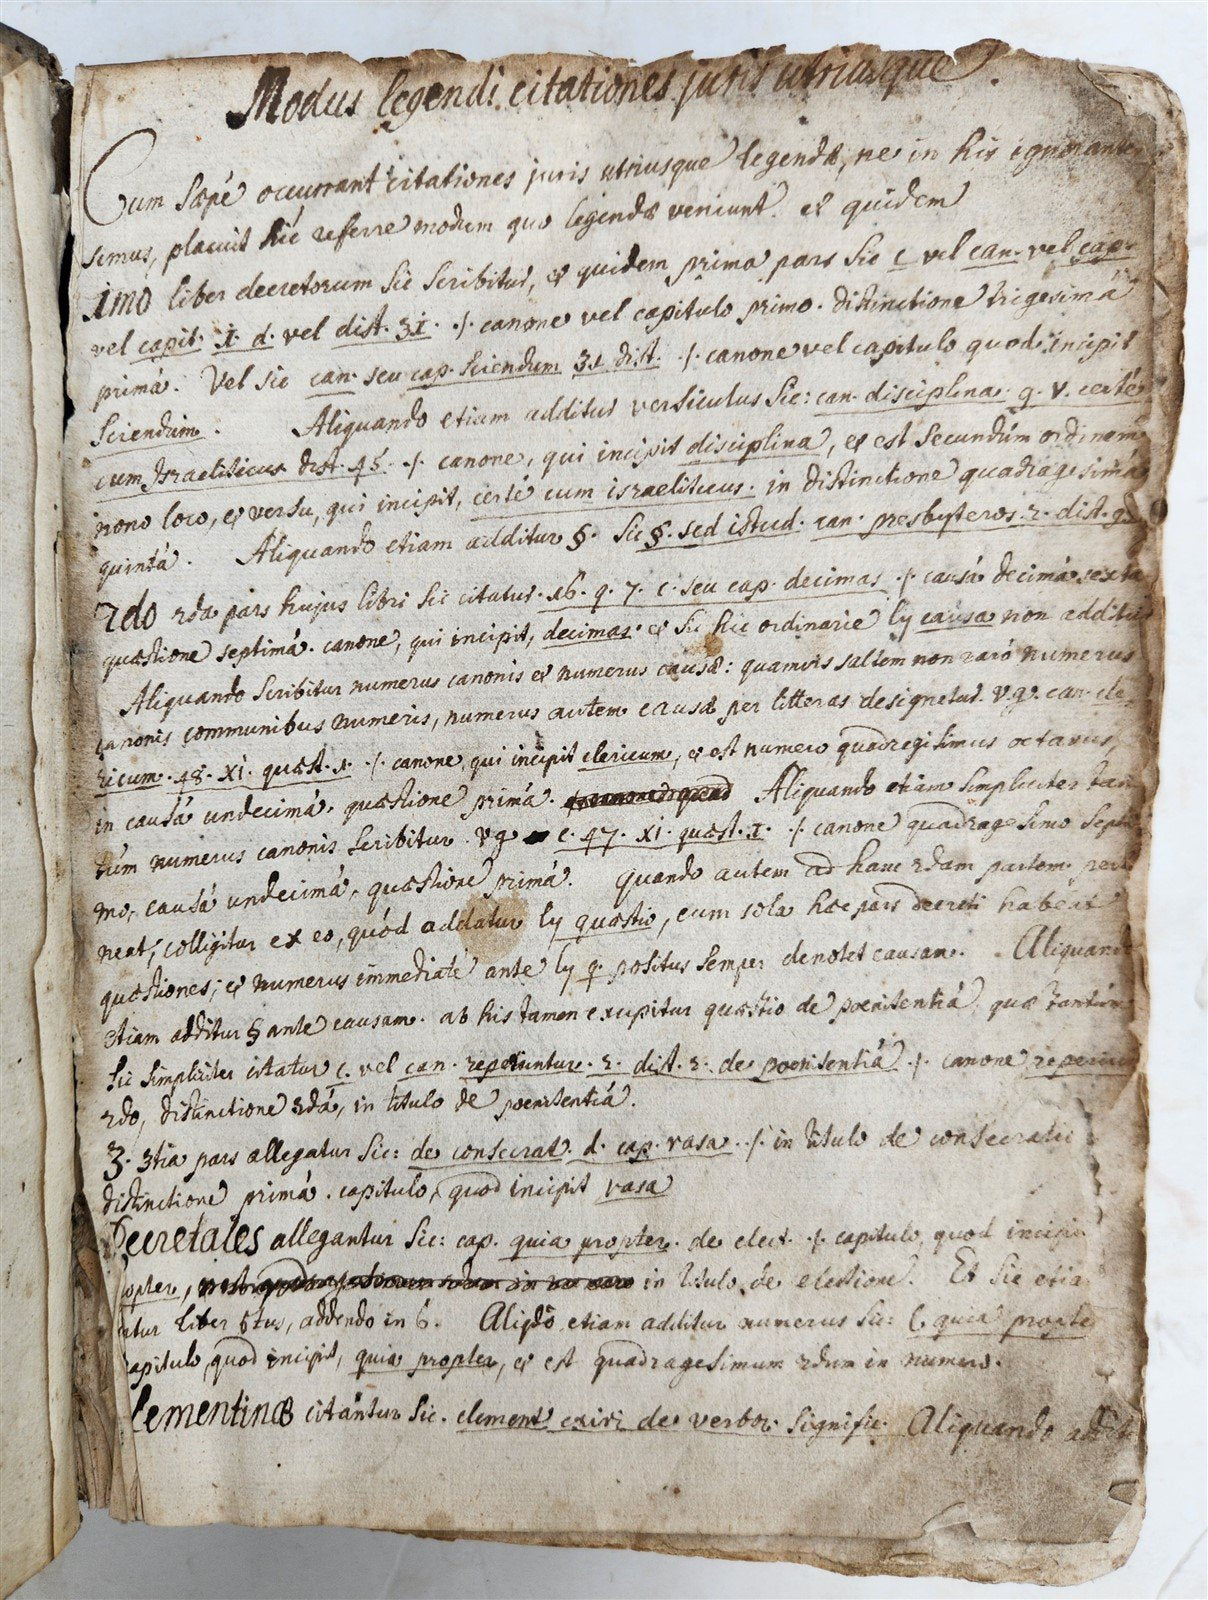 Modus legendi citationes juris utriusque.
Cum sæpé occurrant citationes juris utriusque legendæ, ne in his ignorantes
simus, placuit hic referre modum quo legendæ veniunt. et quidem
1mo liber decretorum sic scribitur, et quidem prima pars sic c vel can. vel cap.
vel capit. 1. d. vel dist. 31. ·/. canone vel capitulo primo. distinctione trigesimâ
primâ. Vel sic can. seu cap. sciendum 31 dist. ·/. canone vel capitulo quod incipit
sciendum. Aliquando etiam additur versiculus sic: can. disciplina. 9. v. certé
cum Israeliticus dist. 45. ·/. canone, qui incipit disciplina, et est secundúm ordinem
nono loco, et versu, qui incipit, certé cum israeliticus. in distinctione quadragesimâ
quintâ. Aliquando etiam additur §. sic §. sed istud. can. presbyteros. 2. dist.
2do 2da pars hujus libri sic citatur. 16. q. 7. c. seu cap. decimas ·/. causâ decimâ sexta
quæstione septimâ. canone, qui incipit, decimas. et sic hic ordinarie ly causa non additur
Aliquando scribitur numerus canonis et numerus causæ: quamvis saltem non raró numerus
canonis communibus numeris, numerus autem causæ per litteras designetur. v.g. can. cle-
ricum. 48. XI. quæst. 1. ·/. canone, qui incipit clericum, et est numero quadregisimus octavus,
in causâ undecimâ. quæstione primâ. Aliquando etiam simpliciter tan
túm numerus canonis scribitur. vg c. 47. XI. quæst. 1. ·/. canone quadragesimo septi
mo, causâ undecimâ, quæstione primâ. Quando autem ad hanc 2dam partem perti
neat, colligitur ex eo, quód addatur ly quæstio, cum sola hæc pars decreti habeat
quæstiones; et numerus immediaté ante ly q. positus semper denotet causam. Aliquando
etiam additur § ante causam. ab his tamen excipitur quæstio de poenitentiâ quæ tantúm
sic simpliciter citatur c. vel can. reperiuntur. 2. dist. 2. de poenitentiâ ·/. canone
2do, distinctione 2dâ, in titulo de poenitentiâ.
3. 3tia pars allegatur sic: de consecrat. d. cap. vasa. ·/. in titulo de consecratio
distinctione primâ. capitulo, quod incipit vasa
Decretales allegantur sic: cap. quia propter. de elect. ·/. capitulo, quod incipi
opter, in titulo de electione. Et sic etia
tur liber 6tus, addendo in 6. Aliqdo etiam additur numerus sic: C. quia propte
apitulo, quod incipit, quia propter, et est quadragesimum 2dum in numero.
Clementinæ citantur sic. clement exivi de verbor. signific. Aliquando